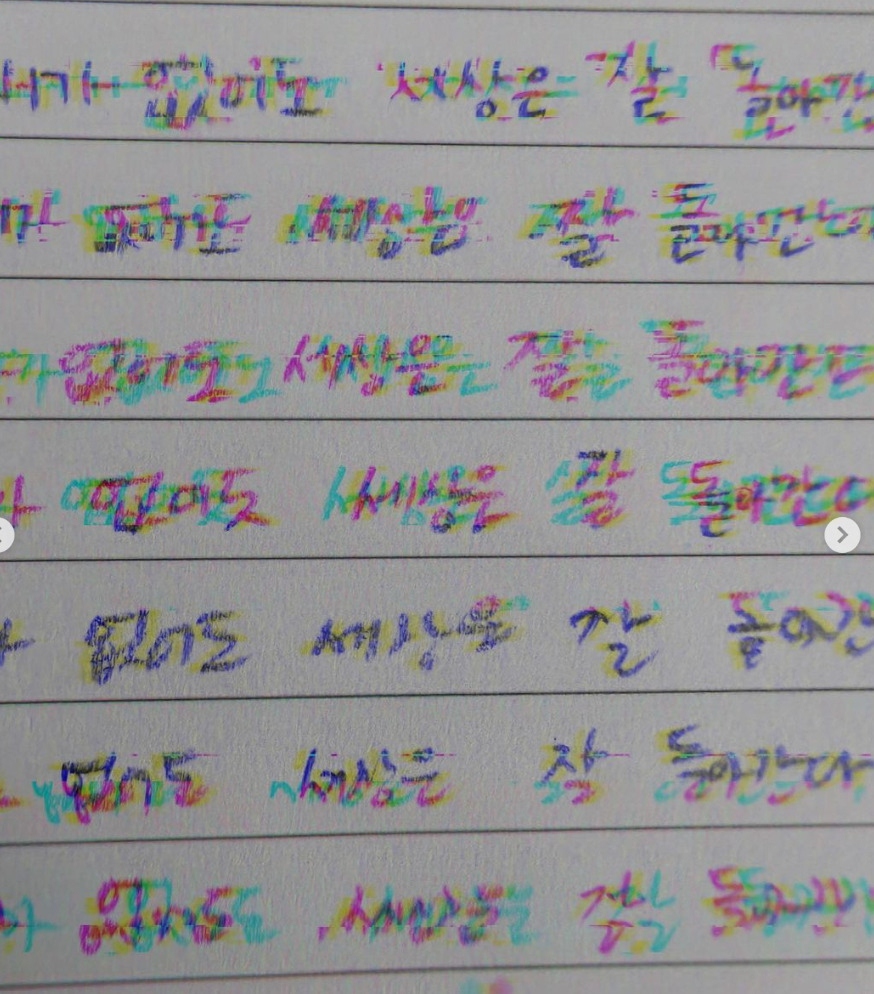 가 없어도 세상은 잘 돌아간
가 없어도 세상은 잘 돌아간다
가 없어도 세상은 잘 돌아간다
없어도 세상은 잘 돌아간다
없어도 세상은 잘 돌아간
없어도 세상은 잘 돌아간다
없어도 세상은 잘 돌아간